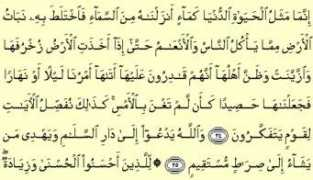 إِنَّمَا مَثَلُ ٱلْحَيَوٰةِ ٱلدُّنْيَا كَمَآءٍ أَنزَلْنَـٰهُ مِنَ ٱلسَّمَآءِ فَٱخْتَلَطَ بِهِۦ نَبَاتُ
ٱلْأَرْضِ مِمَّا يَأْكُلُ ٱلنَّاسُ وَٱلْأَنْعَـٰمُ حَتَّىٰٓ إِذَآ أَخَذَتِ ٱلْأَرْضُ زُخْرُفَهَا
وَٱزَّيَّنَتْ وَظَنَّ أَهْلُهَآ أَنَّهُمْ قَـٰدِرُونَ عَلَيْهَآ أَتَىٰهَآ أَمْرُنَا لَيْلًا أَوْ نَهَارًا
فَجَعَلْنَـٰهَا حَصِيدًا كَأَن لَّمْ تَغْنَ بِٱلْأَمْسِ ۚ كَذَٰلِكَ نُفَصِّلُ ٱلْـَٔايَـٰتِ
لِقَوْمٍ يَتَفَكَّرُونَ ٢٤ وَٱللَّهُ يَدْعُوٓا۟ إِلَىٰ دَارِ ٱلسَّلَـٰمِ وَيَهْدِى مَن
يَشَآءُ إِلَىٰ صِرَٰطٍ مُّسْتَقِيمٍ ٢٥ ۞ لِّلَّذِينَ أَحْسَنُوا۟ ٱلْحُسْنَىٰ وَزِيَادَةٌ ۖ